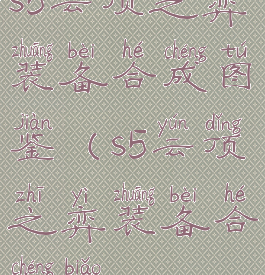 s5云顶之弈
zhuāng bèi hé chéng tú
装备合成图
jiàn yún dǐng
鉴（s5云顶
zhī yì zhuāng bèi hé
之弈装备合
chéng biǎo